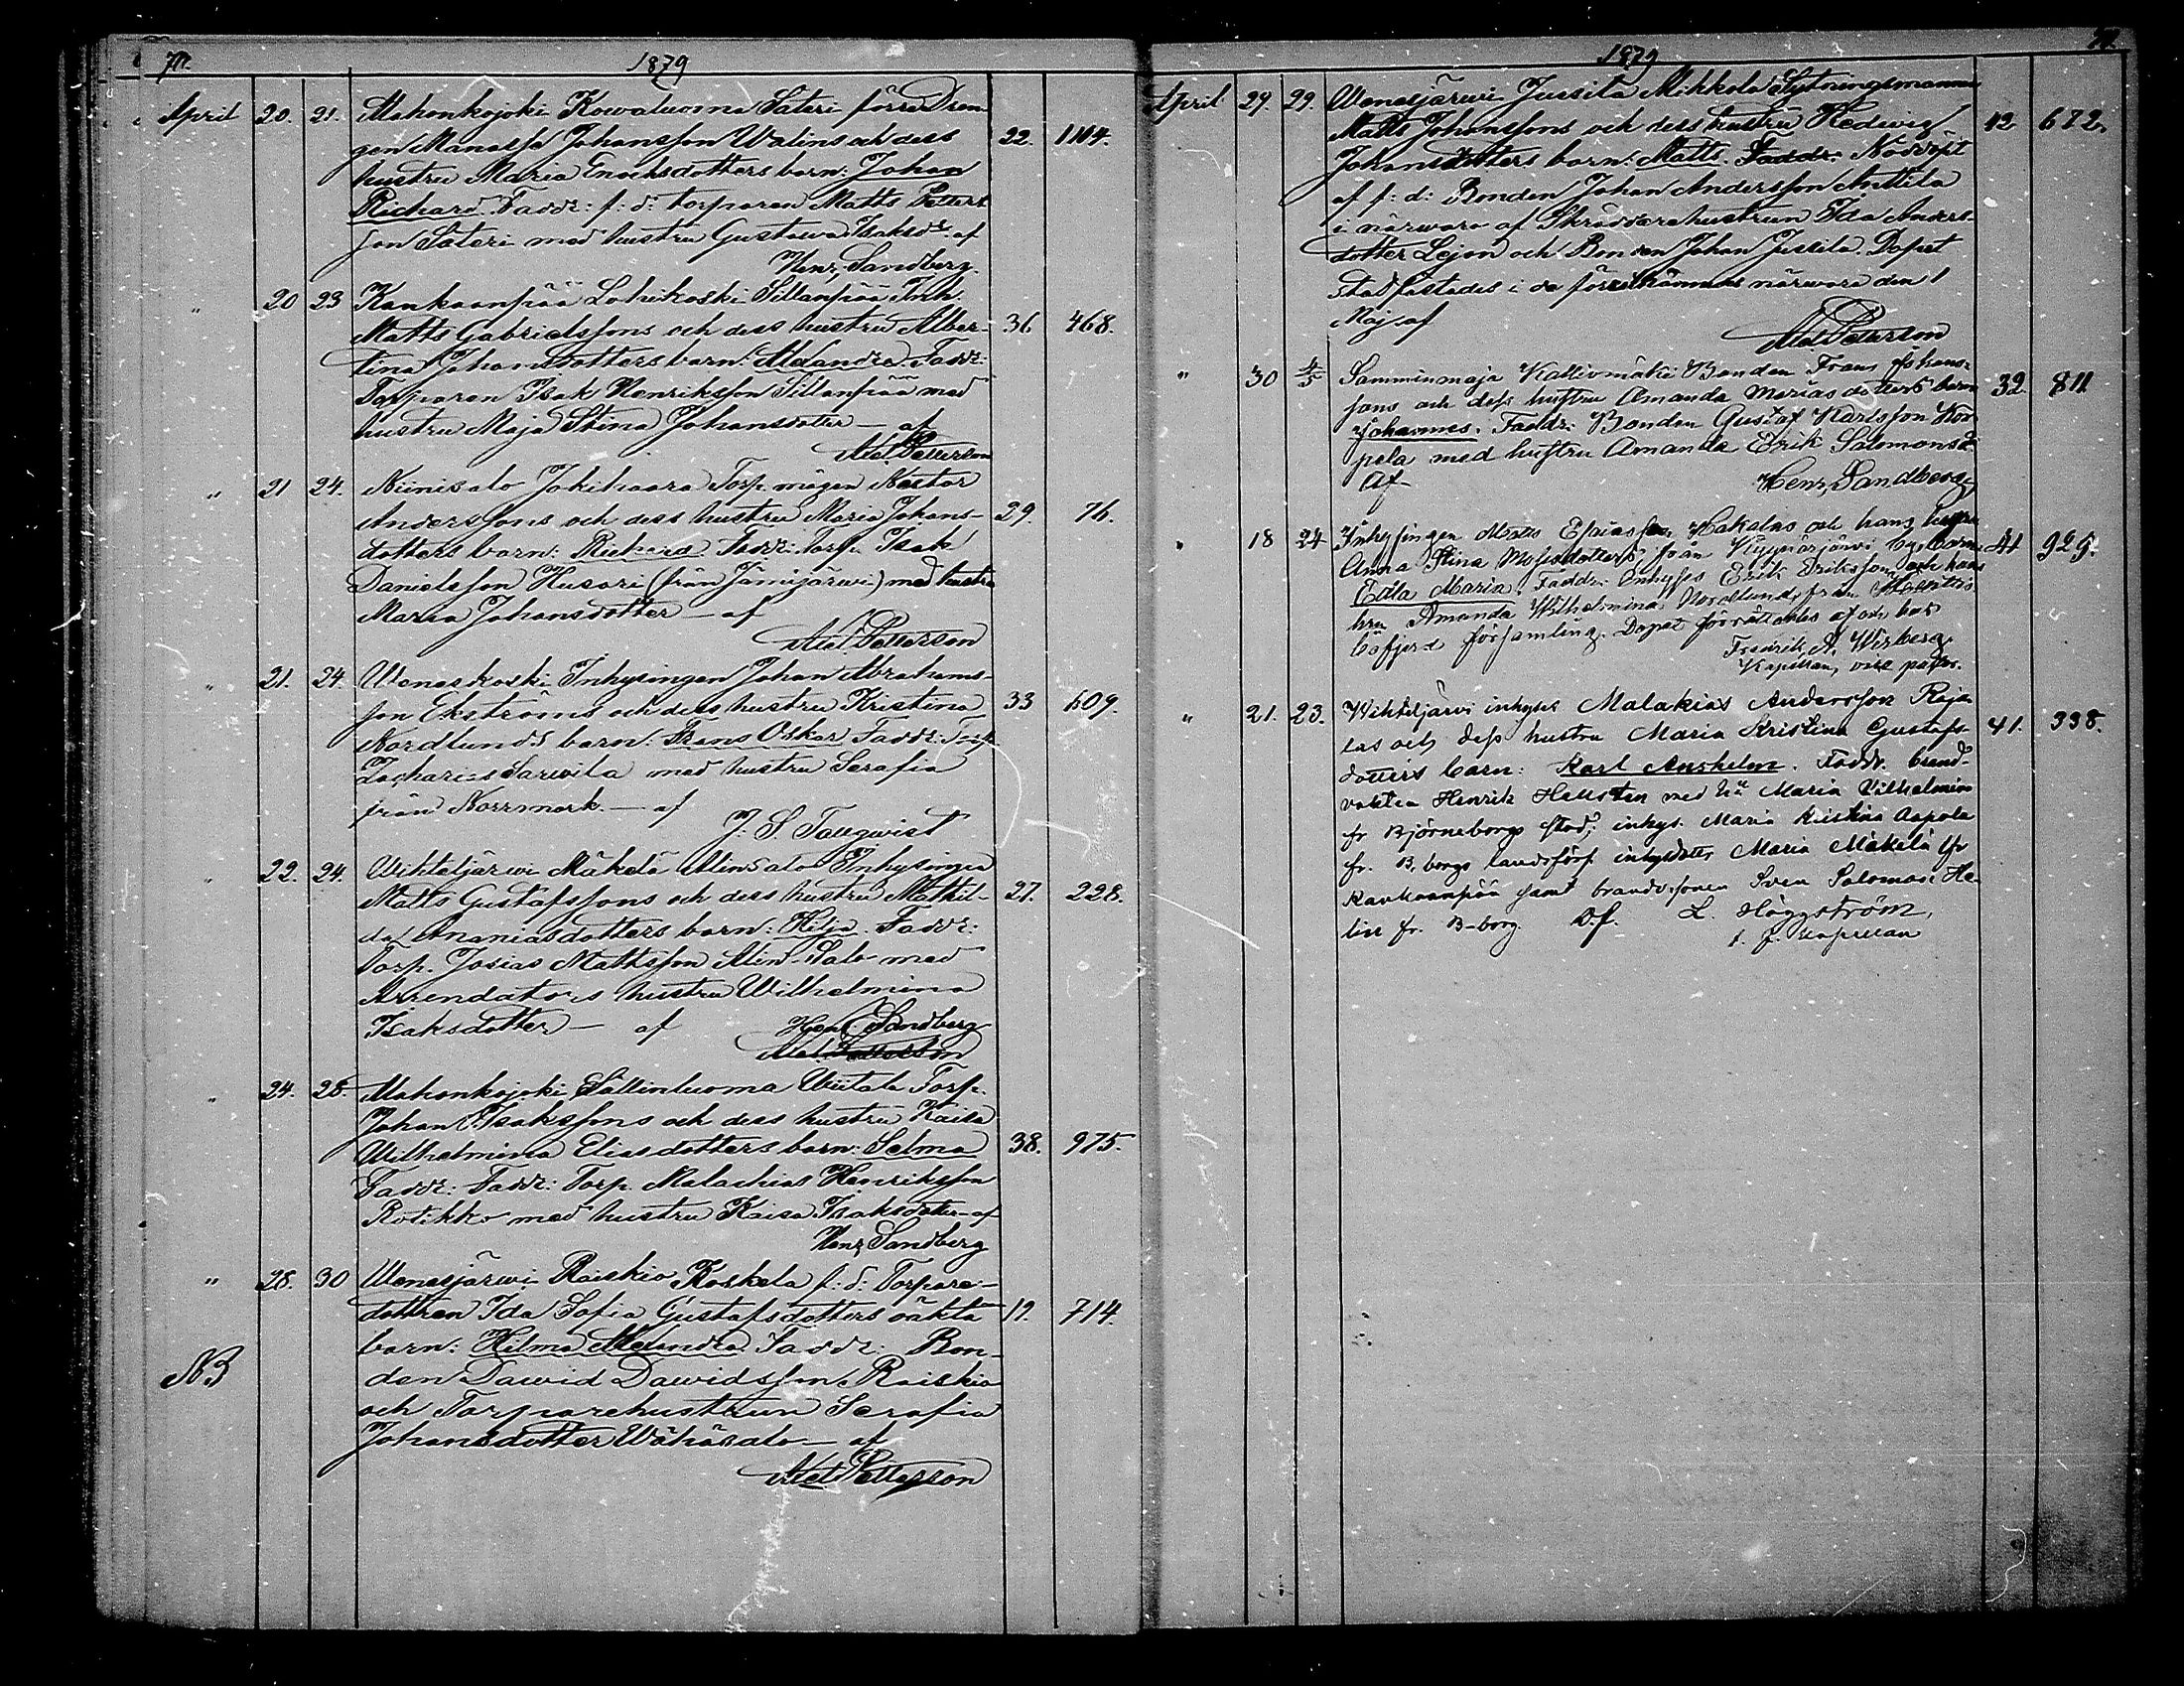 1879
April 20. 21. Mahonkojoki Kowaluoma Sateri förra Dren-
gen Manasse Johansson Walins och dess 22. 1104.
hustru Maria Enochsdotters barn: Johan
Richard. Faddr: f: d: torparen Matts Petters
son Sateri med hustru Gustawa Isaksdr af
Henr. Sandberg.
" 20 23 Kankaanpää Lohikoski Sillanpää Inh.
Matts Gabrielssons och dess hustru Alber- 36 468.
tina Johansdotters barn: Alexandra. Faddr:
Torparen Isak Henriksson Sillanpää med
hustru Maja Stina Johansdotter — af
Axel Petterson
" 21 24. Niinisalo Jokihaara Torp. mågen Nestor
Anderssons och dess hustru Maria Johans- 29. 76.
dotters barn: Richard. Faddr: torp. Isak
Danielsson Husari (från Jämijärwi) med hustru
Maria Johansdotter — af
Axel Petterson
" 21. 24. Weneskoski Inhysingen Johan Abrahams-
son Ekströms och dess hustru Kristina 33 609.
Nordlunds barn: Frans Oskar. Faddr: Torp.
Zacharias Sarwila med hustru Serafia
från Norrmark. — af
J. S. Tallqwist
" 22. 24. Wihteljärwi Mäkelä Alinsalo Inhysingen
Matts Gustafssons och dess hustru Mathil- 27. 228.
da Ananiasdotters barn: Hilja. Faddr:
Torp. Josias Mattsson Alin-Salo med
Arrendators hustru Wilhelmina
Isaksdotter — af Henr. Sandberg
Axel Petterson
" 24. 28. Mahonkojoki Sällinluoma Wiitala Torp.
Johan Isakssons och dess hustru Kaisa
Wilhelmina Eliasdotters barn: Selma 38. 975.
Faddr: Faddr: Torp. Malachias Henriksson
Rotikko med hustru Kaisa Isaksdotter - af
Henr. Sandberg
" 28. 30 Wenesjärwi Raiskio Koskela f: d: Torpare-
dottren Ida Sofia Gustafsdotters oäkta 19. 714.
barn: Hilma Alexandra. Faddr: Bon-
NB den Dawid Dawidsson Raiskio
och Torparehustrun Serafia
Johansdotter Wähäsalo — af
Axel Petterson
1879
April 29. 29. Wenesjärwi Jussila Mikkola Sytningsmannen
Matts Johanssons och dess hustru Hedwig 12 672.
Johansdotters barn: Matts. Faddr: Nöddöpt
af f: d: Bonden Johan Andersson Anttila
i närwaro af Skräddarehustrun Ida Anders-
dotter Lejon och Bonden Johan Jussila. Dopet
stadfästades i de närwaro den 1
Maj af
Axel Petterson
" 30 4/5 Samminmaja Kalliomäki Bonden Frans Johans-
sons och dess hustru Amanda Mariasdotters barn 32 811
Johannes. Faddr: Bonden Gustaf Karlsson Kor-
pela med hustru Amanda Erik Salomonsd.
af Henr. Sandberg
" 18 24 Inhysingen Matts Esaiasson Hakalas och hans hustru
Anna Stina Mosisdotters, från by, barn 41 929.
Edla Maria. Faddr: Inhyses Erik Eriksson och hans
hru Amanda Wilhelmina Nordlund, från
församling. Dopet förrättades af
Fredrik A. Wirberg.
Kapellan, vice pastor.
" 21. 23. Wihteljärvi inhyses Malakias Andersson Raja-
las och dess hustru Maria Kristina Gustafs- 41. 338.
dotters barn: Karl Anshelm. Faddr. brand-
vakten Henrik Hellsten med hu Maria Vilhelmina
fr Björneborgs stad; inhys. Maria Kristina Aapola
fr. B.borgs landsförs. inhysdottr Maria Mäkelä fr
Kankaanpää samt brandv.sonen Sven Salomon He-
lin fr. B-borg. Af. L. Häggström,
t. f. kapellan